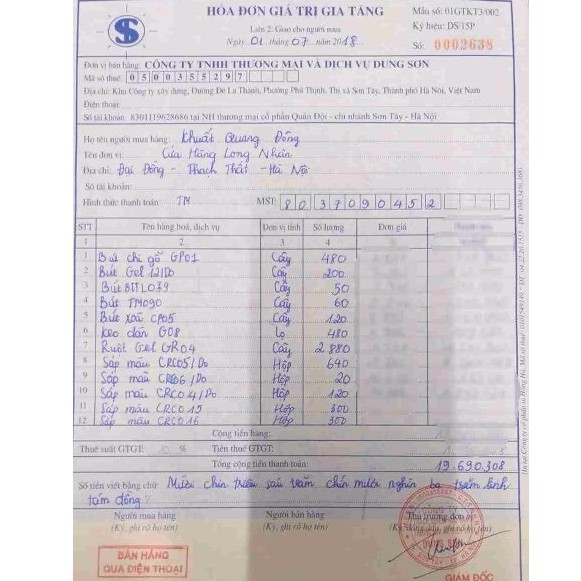 HÓA ĐƠN GIÁ TRỊ GIA TĂNG
Liên 2: Giao cho người mua
Ngày 01 tháng 07 năm 2018
Mẫu số: 01GTKT3/002
Ký hiệu: DS/15P
Số: 0002638
Đơn vị bán hàng: CÔNG TY TNHH THƯƠNG MẠI VÀ DỊCH VỤ DUNG SƠN
Mã số thuế: 0500355297
Địa chỉ: Khu Công ty xây dựng, Đường Đê La Thành, Phường Phú Thịnh, Thị xã Sơn Tây, Thành phố Hà Nội, Việt Nam
Điện thoại:
Số tài khoản: 8301119628686 tại NH thương mại cổ phần Quân Đội - chi nhánh Sơn Tây - Hà Nội
Họ tên người mua hàng: Khuất Quang Đồng
Tên đơn vị: Cửa Hàng Long Nhàn
Địa chỉ: Đại Đồng - Thạch Thất - Hà Nội
Số tài khoản:
Hình thức thanh toán: TM MST: 8037090452
STT Tên hàng hoá, dịch vụ Đơn vị tính Số lượng Đơn giá
1 2 3 4
1 Bút chì gỗ GP01 Cây 480
2 Bút Gel 12/Do Cây 200
3 Bút BITL079 Cây 50
4 Bút TM090 Cây 60
5 Bút xoá CP05 Cây 120
6 Keo dán G08 Lọ 480
7 Ruột Gel GR04 Cây 2880
8 Sáp màu CRC05/Do Hộp 640
9 Sáp màu CRC06/Do Hộp 20
10 Sáp màu CRC04/Do Hộp 120
11 Sáp màu CRC015 Hộp 300
12 Sáp màu CRC016 Hộp 300
Cộng tiền hàng:
Thuế suất GTGT: % Tiền thuế GTGT:
Tổng cộng tiền thanh toán: 19.690.308
Số tiền viết bằng chữ: Mười chín triệu sáu trăm chín mươi nghìn ba trăm linh
tám đồng
Người mua hàng Người bán hàng Thủ trưởng đơn vị
(Ký, ghi rõ họ tên) (Ký, ghi rõ họ tên)
BÁN HÀNG
QUA ĐIỆN THOẠI
GIÁM ĐỐC